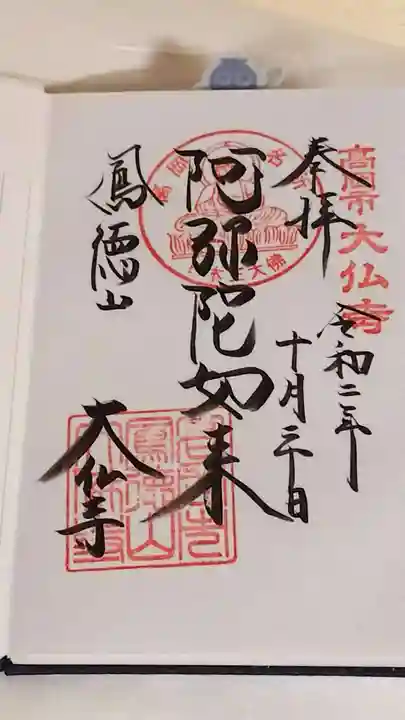 高岡市大仏寺
奉拝
令和二年
十月三十日
阿弥陀如来
鳳徳山
大仏寺